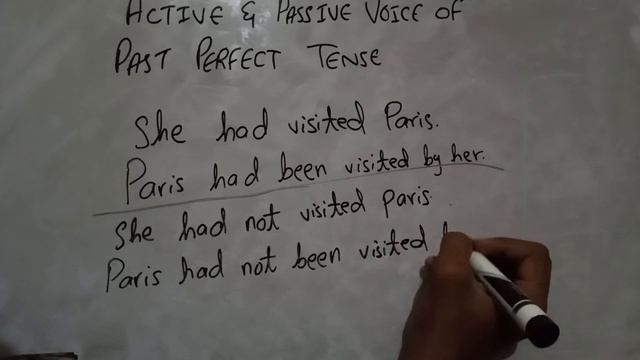 ACTIVE & PASSIVE VOICE OF
PAST PERFECT TENSE
She had visited Paris.
Paris had been visited by her.
She had not visited Paris.
Paris had not been visited